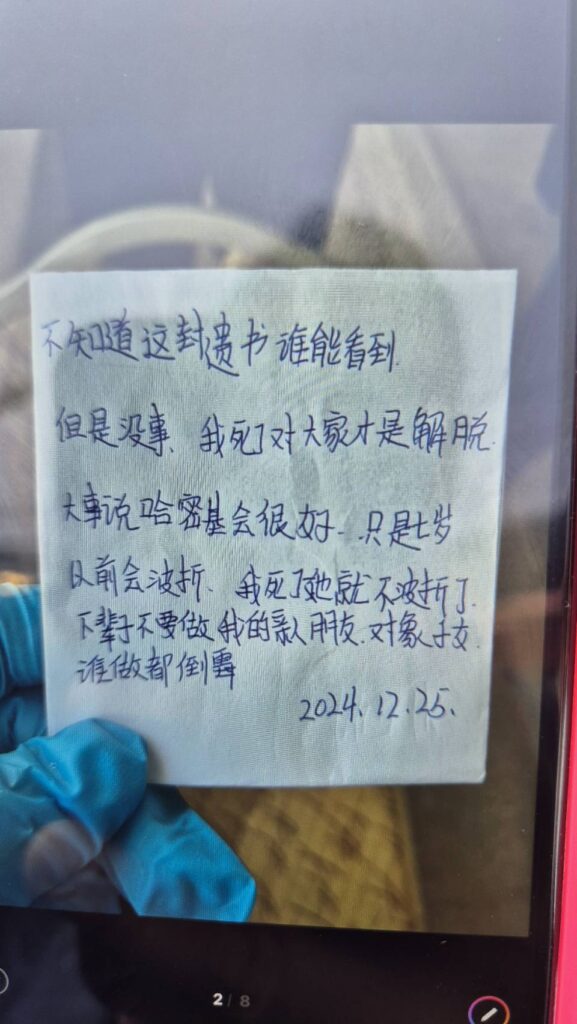 不知道这封遗书谁能看到.
但是没事、我死了对大家才是解脱.
大事说哈密基会很好..只是七岁
以前会波折、我死了她就不波折了.
下辈子不要做我的亲人朋友.对象子女.
谁做都倒霉
2024.12.25.
2/8